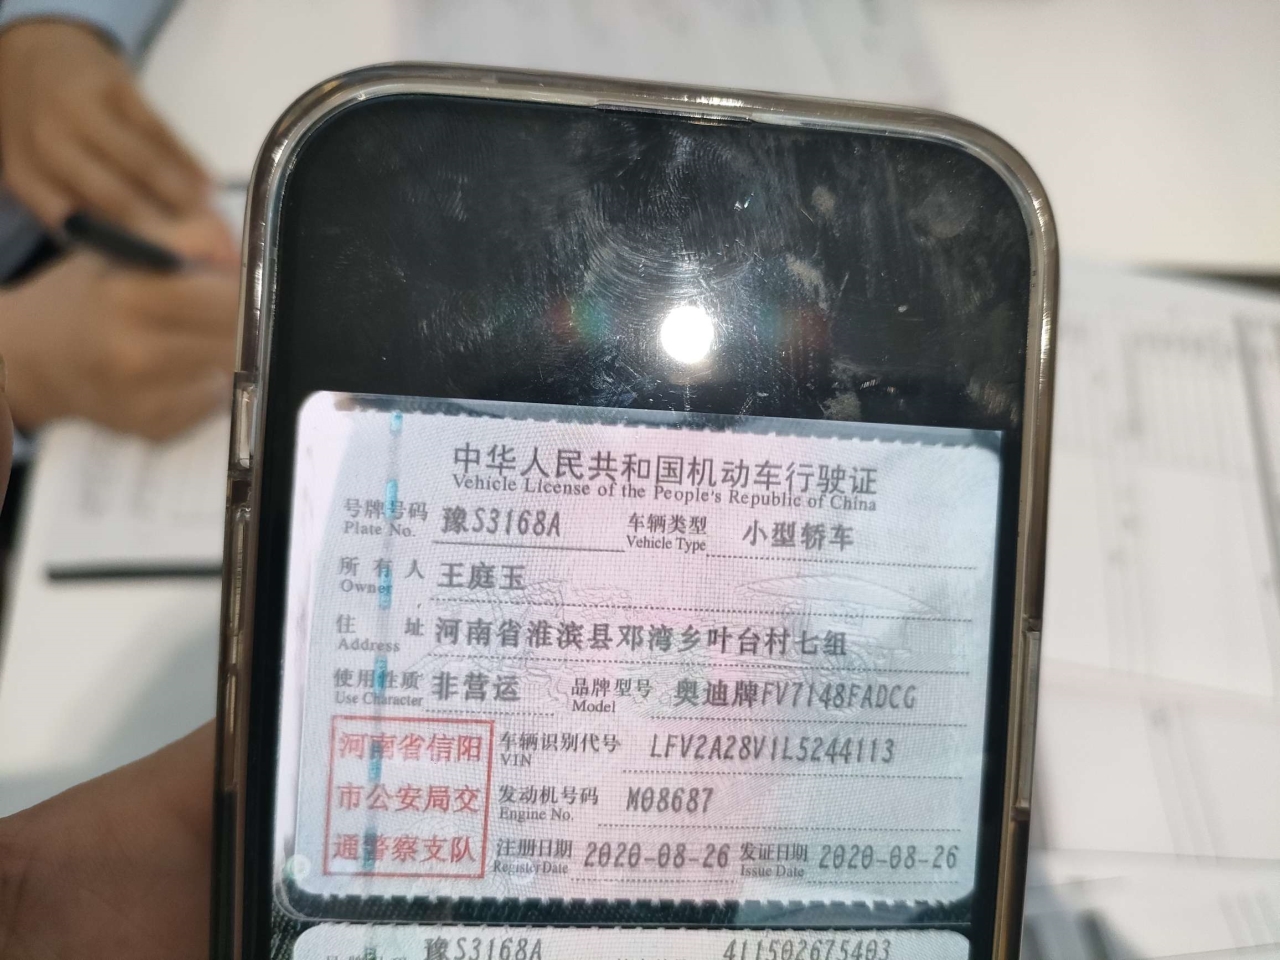 中华人民共和国机动车行驶证
Vehicle License of the People's Republic of China
号牌号码 豫S3168A 车辆类型 小型轿车
Plate No. Vehicle Type
所有人 王庭玉
Owner
住址 河南省淮滨县邓湾乡叶台村七组
Address
使用性质 非营运 品牌型号 奥迪牌FV7148FADCG
Use Character Model
河南省信阳
市公安局交
通警察支队
车辆识别代号 LFV2A28V1L5244113
VIN
发动机号码 M08687
Engine No.
注册日期 2020-08-26 发证日期 2020-08-26
Register Date Issue Date
豫S3168A 411502675403